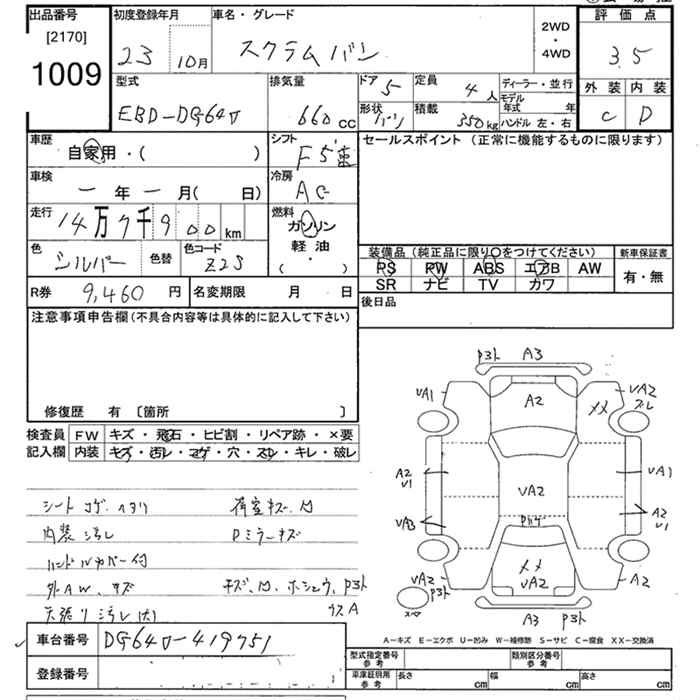 出品番号 初度登録年月 車名・グレード 2WD・4WD 評価点
[2170]
1009 23 10月 スクラムバン 3.5
型式 排気量 ドア 5 定員 4人 ディーラー・並行 外装 内装
EBD-DG64V 660cc 形状 バン 積載 350kg モデル年式 年 ハンドル 左・右 C D
車歴 自家用・( ) シフト F5速 セールスポイント (正常に機能するものに限ります)
車検 ー年ー月( 日) 冷房 AC
走行 14万7千900km 燃料 ガソリン 軽油 ・( )
色 シルバー 色替 色コード Z2S 装備品 (純正品に限り○をつけてください) 新車保証書
PS PW ABS エアB AW 有・無
SR ナビ TV カワ
R券 9,460円 名変期限 月 日 後日品
注意事項申告欄 (不具合内容等は具体的に記入して下さい)
修復歴 有 〔箇所 〕
検査員 FW キズ・飛石・ヒビ割・リペア跡・×要
記入欄 内装 キズ・汚レ・コゲ・穴・スレ・キレ・破レ
P3ト A3
VA1 A2 XX VA2
A2 V1 VA1
VA2
VA3 A2 V1
VA2 P3ト XX VA2 A2
スペア A3 P3ト
シート コゲ、ヘタリ 荷室キズ、凹
内装 汚レ Dミラーキズ
ハンドルカバー付
外AW、キズ キズ、凹、ホシュウ、P3ト
天張リ 汚レ(大)
A-キズ E-エクボ U-凹み W-補修跡 S-サビ C-腐食 XX-交換済
車台番号 DG64V-419751 型式指定番号 参考 類別区分番号 参考
登録番号 車庫証明用 参考 長さ cm 幅 cm 高さ cm